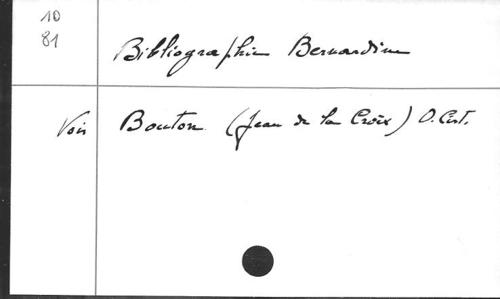 10
81
Bibliographie Bernardine
Voir Bouton (Jean de la Croix) O. Cist.